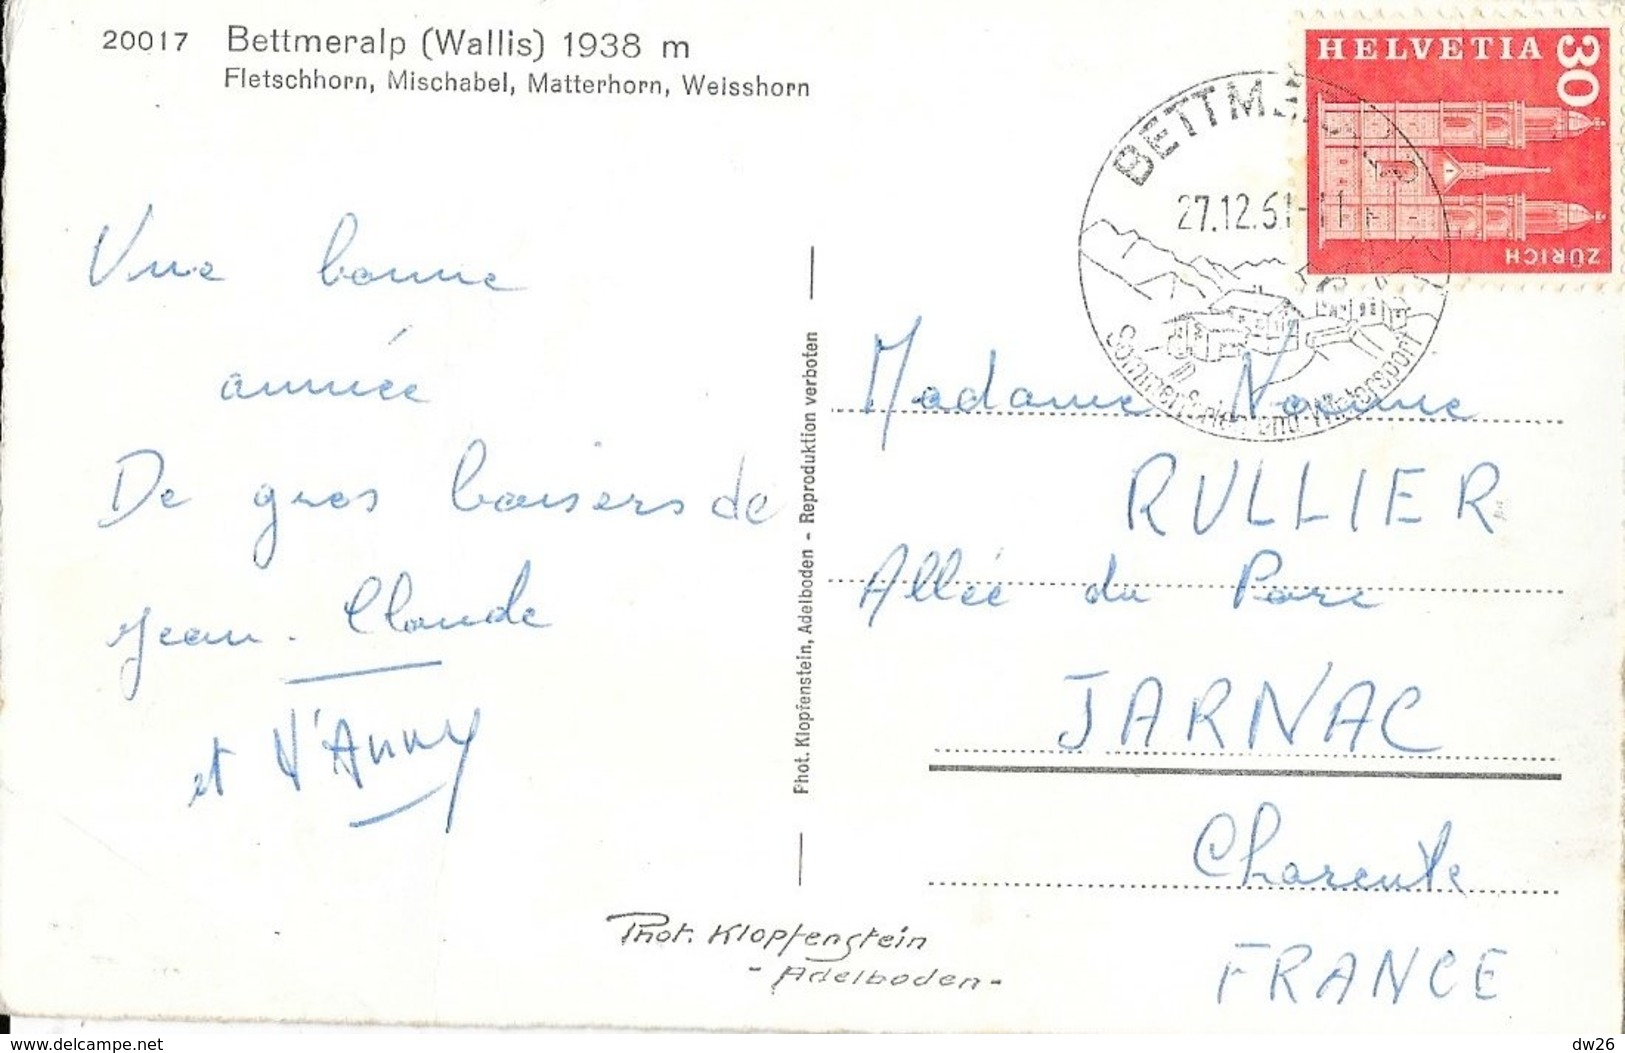 20017 Bettmeralp (Wallis) 1938 m
Fletschhorn, Mischabel, Matterhorn, Weisshorn
HELVETIA 30
ZÜRICH
27.12.61-11
Sommerferien und Wintersport
Vne bonne
année
De gros baisers de
Jean-Claude
et d'Anny
Phot. Klopfenstein, Adelboden - Reproduktion verboten
Madame
RULLIER
Allée du Parc
JARNAC
Charente
FRANCE
Phot. Klopfenstein
- Adelboden -
www.delcampe.net
dw26